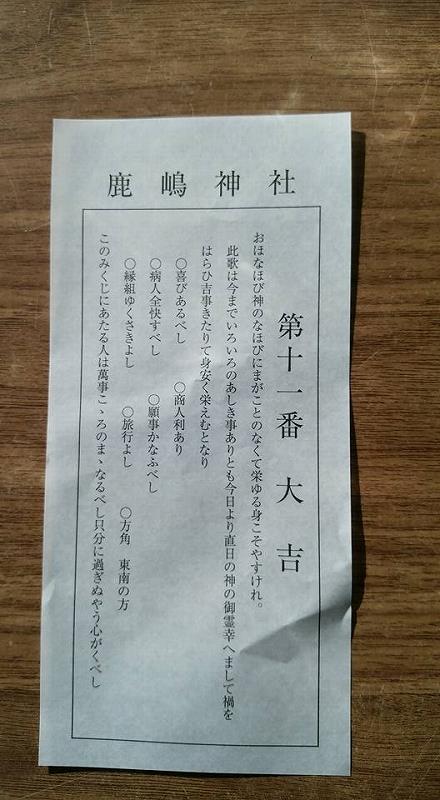 鹿嶋神社
第十一番 大吉
おほなほび神のなほびにまがことのなくて栄ゆる身こそやすけれ。
此歌は今までいろいろのあしき事ありとも今日より直日の神の御霊幸へまして禍を
はらひ吉事きたりて身安く栄えむとなり
〇喜びあるべし 〇商人利あり
〇病人全快すべし 〇願事かなふべし
〇縁組ゆくさきよし 〇旅行よし 〇方角 東南の方
このみくじにあたる人は萬事こゝろのまゝなるべし只分に過ぎぬやう心がくべし